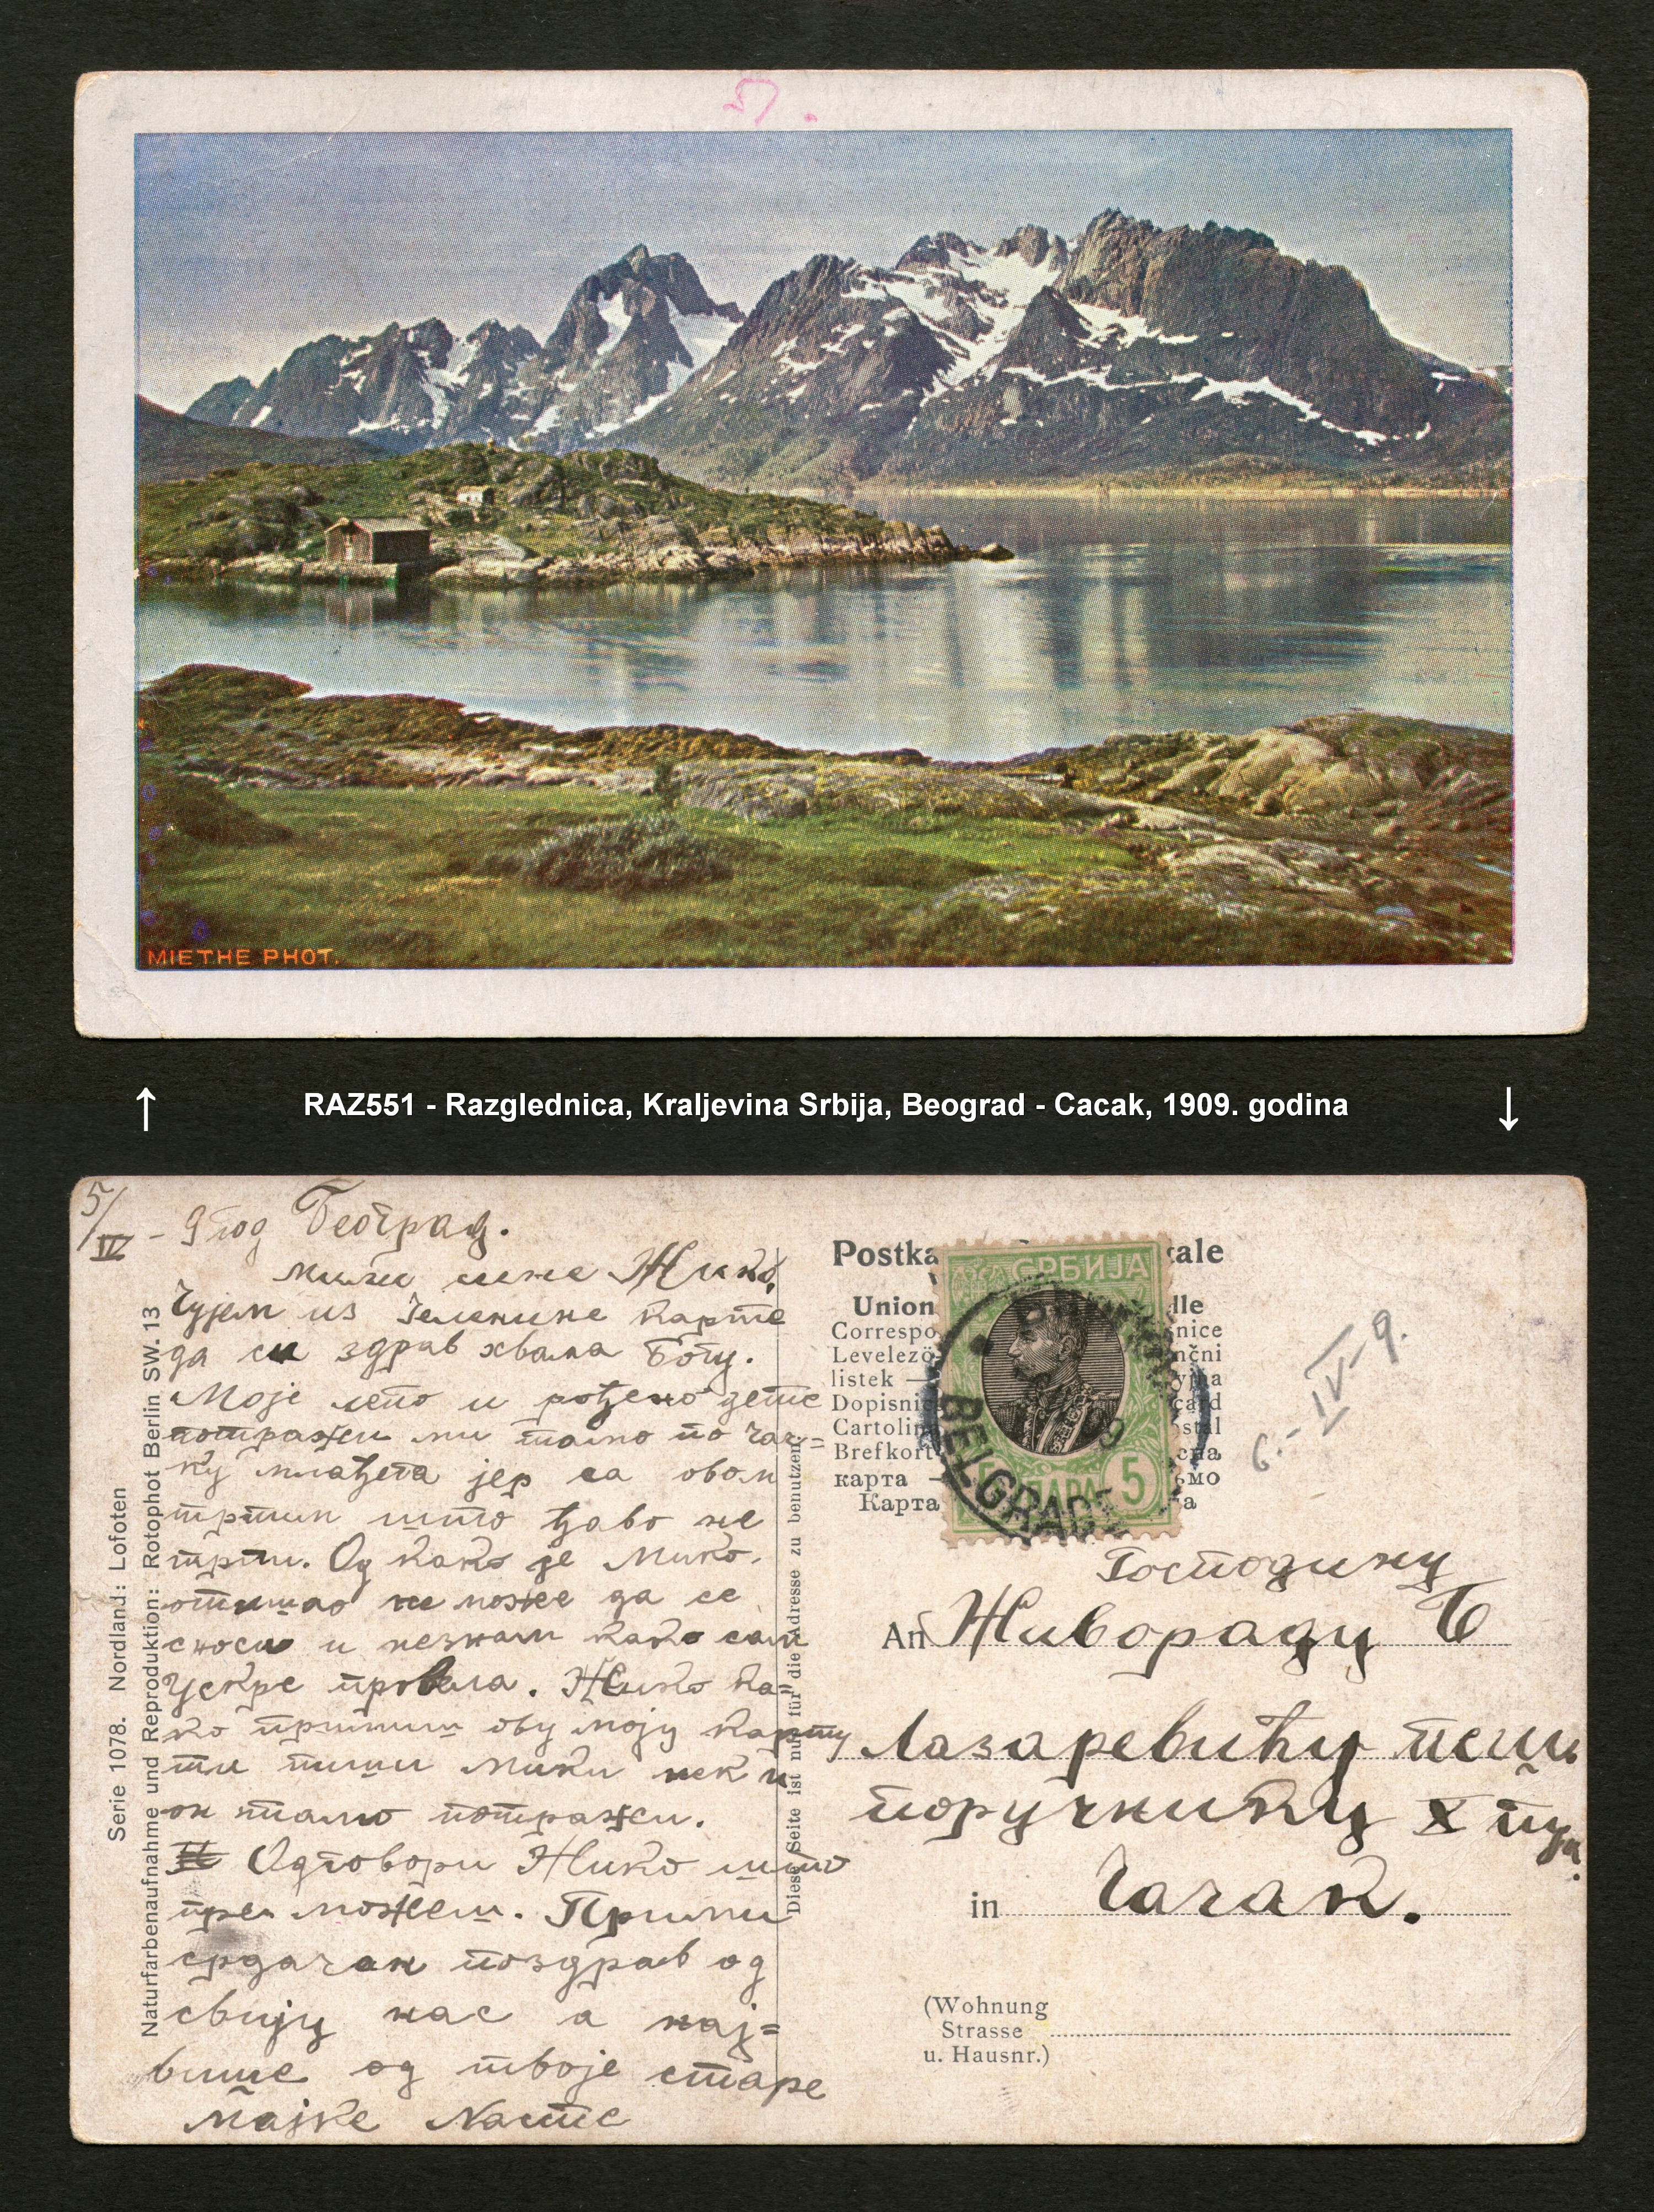 5).
MIETHE PHOT.
RAZ551 - Razglednica, Kraljevina Srbija, Beograd - Cacak, 1909. godina
5/IV - 9 год Београд.
Мили сине Жико,
Чујем из Челекине карте
да си здрав хвала Богу.
Моје лепо и рођено дете
потражи ми тамо по Чач=
ку млађега јер са овом
трпим што ђаво не
трпи. Од како је Мико
отишао не може да се
сноси и незнам како сам
Ускрс провела. Жико ка=
ко примиш ову моју карту
ти пиши Мики нек и
он тамо потражи.
Одговори Жико што
пре можеш. Прими
срдачан поздрав од
свију нас а нај=
више од твоје старе
мајке Насте
Serie 1078. Nordland: Lofoten
Naturfarbenaufnahme und Reproduktion: Rotophot Berlin SW. 13
Diese Seite ist nur für die Adresse zu benutzen.
Postka ale
Union lle
Correspo nice
Levelező nčni
listek
Dopisni card
Cartolin ostal
Brefkort
карта ьмо
Карта а
СРБИЈА
ПАРА 5
BELGRADE
6.-IV-9.
Господину
An Живораду Б
Лазаревићу пеш.
поручнику X пука.
in Чачак.
(Wohnung
Strasse
u. Hausnr.)